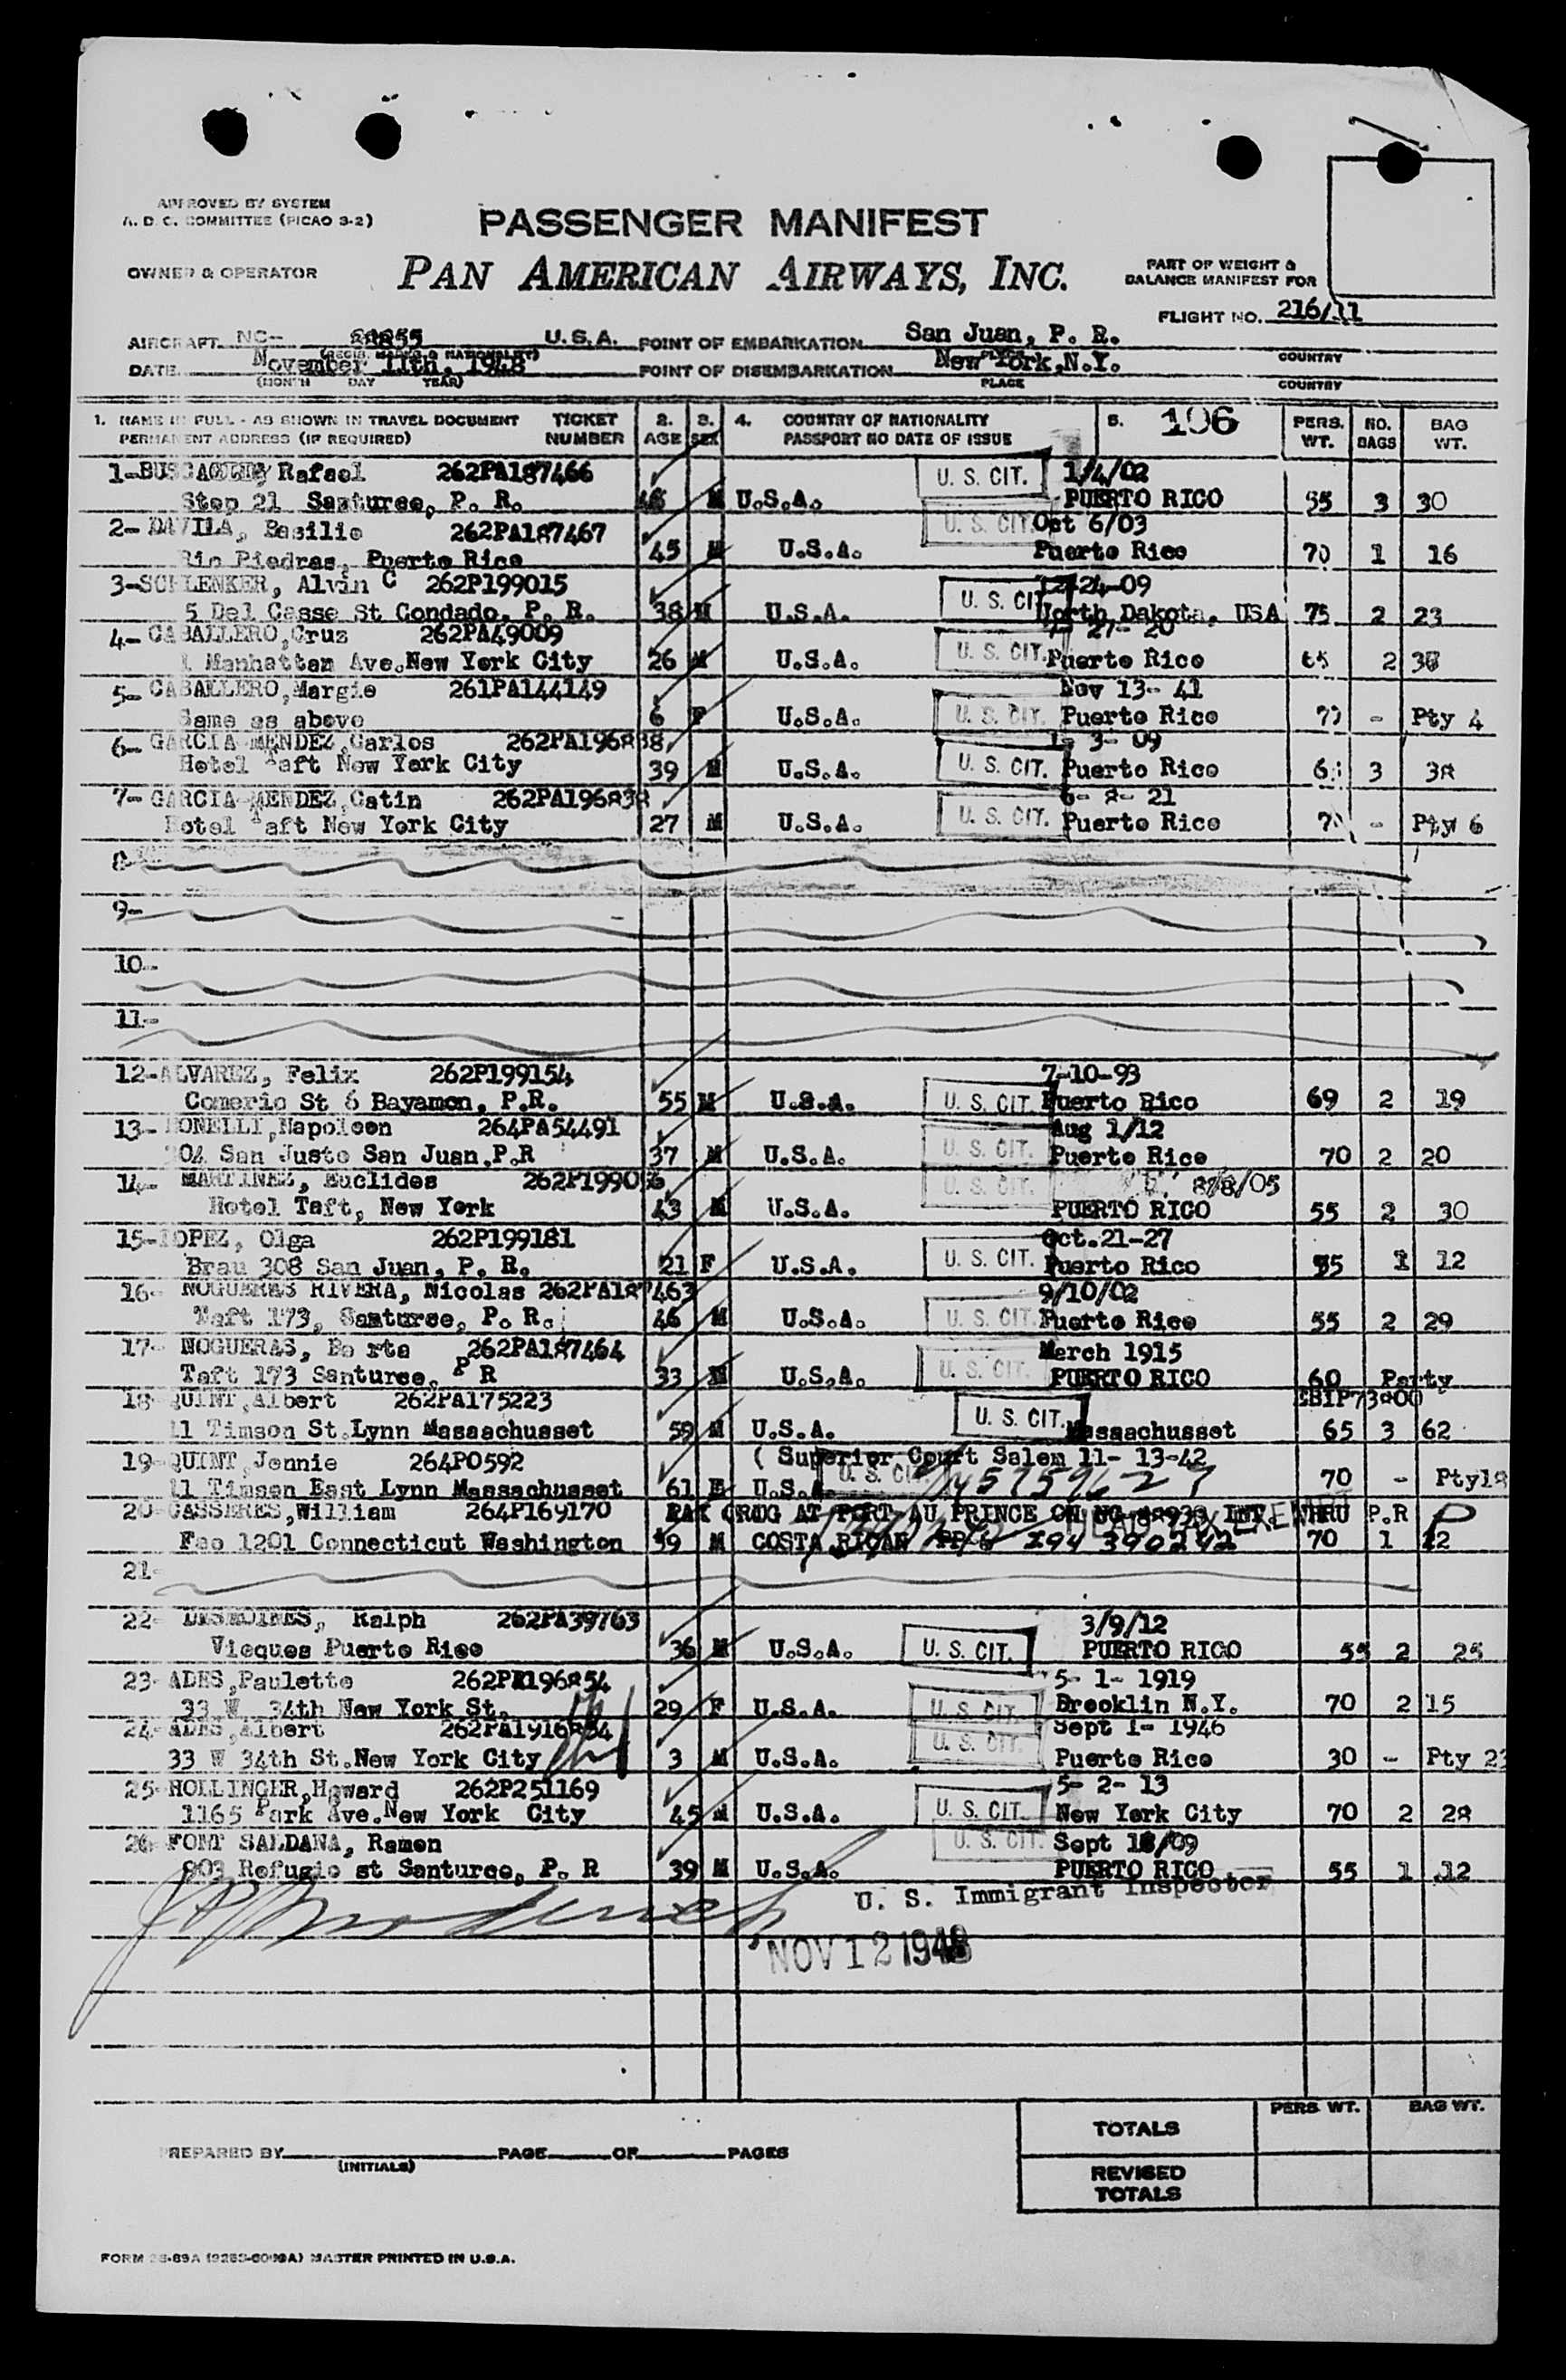 APPROVED BY SYSTEM
A. D. C. COMMITTEE (PICAO 3-2)
PASSENGER MANIFEST
OWNER & OPERATOR
PAN AMERICAN AIRWAYS, INC.
PART OF WEIGHT &
BALANCE MANIFEST FOR
FLIGHT NO. 216/11
AIRCRAFT NC- 88855 U.S.A. POINT OF EMBARKATION San Juan, P. R.
(REGIS. MARKS & NATIONALITY) PLACE COUNTRY
DATE November 11th, 1948 POINT OF DISEMBARKATION New York,N.Y.
(MONTH DAY YEAR) PLACE COUNTRY
1. NAME IN FULL - AS SHOWN IN TRAVEL DOCUMENT TICKET 2. 3. 4. COUNTRY OF NATIONALITY 5. 106 PERS. NO. BAG
PERMANENT ADDRESS (IF REQUIRED) NUMBER AGE SEX PASSPORT NO DATE OF ISSUE WT. BAGS WT.
1- Rafael 262PA187466 U. S. CIT. 1/4/02
Stop 21 Santurce, P. R. M U.S.A. PUERTO RICO 55 3 30
2- DAVILA, Basilio 262PA187467 U. S. CIT. Oct 6/03
Rio Piedras, Puerto Rico 45 M U.S.A. Puerto Rico 70 1 16
3-SCHLENKER, Alvin C 262P199015 U. S. CIT. 12-24-09
5 Del Casse St Condado, P. R. 38 M U.S.A. North Dakota, USA 75 2 23
4- CABALLERO,Cruz 262PA49009 27- 20
1 Manhattan Ave.New York City 26 M U.S.A. U. S. CIT. Puerto Rico 65 2
5- CABALLERO,Margie 261PA144149 Nov 13- 41
Same as above 6 F U.S.A. U. S. CIT. Puerto Rico - Pty 4
6- GARCIA MENDEZ,Carlos 262PA196838 3- 09
Hotel Taft New York City 39 M U.S.A. U. S. CIT. Puerto Rico 3 38
7- GARCIA MENDEZ,Catin 262PA196838 6- 8- 21
Hotel Taft New York City 27 M U.S.A. U. S. CIT. Puerto Rico - Pty 6
8-
9-
10-
11-
12-ALVAREZ, Felix 262P199154 7-10-93
Comerio St 6 Bayamon, P.R. 55 M U.S.A. U. S. CIT. Puerto Rico 69 2 19
13- Napoleon 264PA54491 Aug 1/12
204 San Justo San Juan,P.R 37 M U.S.A. U. S. CIT. Puerto Rico 70 2 20
14- MARTINEZ, Euclides U. S. CIT. 8/8/05
Hotel Taft, New York 43 M U.S.A. PUERTO RICO 55 2 30
15-LOPEZ, Olga 262P199181 Oct.21-27
Brau 308 San Juan, P. R. 21 F U.S.A. U. S. CIT. Puerto Rico 55 1 12
16- NOGUERAS RIVERA, Nicolas 262PA187463 9/10/02
Taft 173, Santurse, P. R. 46 M U.S.A. U. S. CIT. Puerto Rico 55 2 29
17- NOGUERAS, Be rta 262PA187464 March 1915
Taft 173 Santurce, P R 33 U.S.A. U. S. CIT. PUERTO RICO 60 Party
18- QUINT,Albert 262PA175223
11 Timson St.Lynn Masaachusset 59 M U.S.A. U. S. CIT. Masaachusset 65 3 62
19-QUINT,Jennie 264P0592 ( Superior Court Salem 11- 13-42
11 Timson East Lynn Massachusset 61 F U.S.A. U. S. CIT. 70 - Pty18
20-CASSERES,William 264P169170 PAX ORIG AT PORT AU PRINCE ON NC THRU P.R
Fao 1201 Connecticut Washington 39 M COSTA RICAN 70 1
21-
22- DESMOINES, Ralph 262PA39763 3/9/12
Vieques Puerto Rico 36 M U.S.A. U. S. CIT. PUERTO RICO 55 2 25
23- ADES,Paulette 262PA196854 5- 1- 1919
33 W 34th New York St. 29 F U.S.A. U. S. CIT. Brooklin N.Y. 70 2 15
24- ADES,Albert 262PA1916854 Sept 1- 1946
33 W 34th St.New York City 3 M U.S.A. U. S. CIT. Puerto Rico 30 - Pty 23
25- HOLLINGER,Howard 262P251169 5- 2- 13
1165 Park Ave.New York City 45 M U.S.A. U. S. CIT. New York City 70 2 28
26- FONT SALDANA, Ramon U. S. CIT. Sept 18/09
803 Refugio st Santurce, P. R 39 M U.S.A. PUERTO RICO 55 1 12
U. S. Immigrant Inspector
NOV 12 1948
PERS WT. BAG WT.
TOTALS
PREPARED BY PAGE OF PAGES
(INITIALS)
REVISED
TOTALS
MASTER PRINTED IN U.S.A.